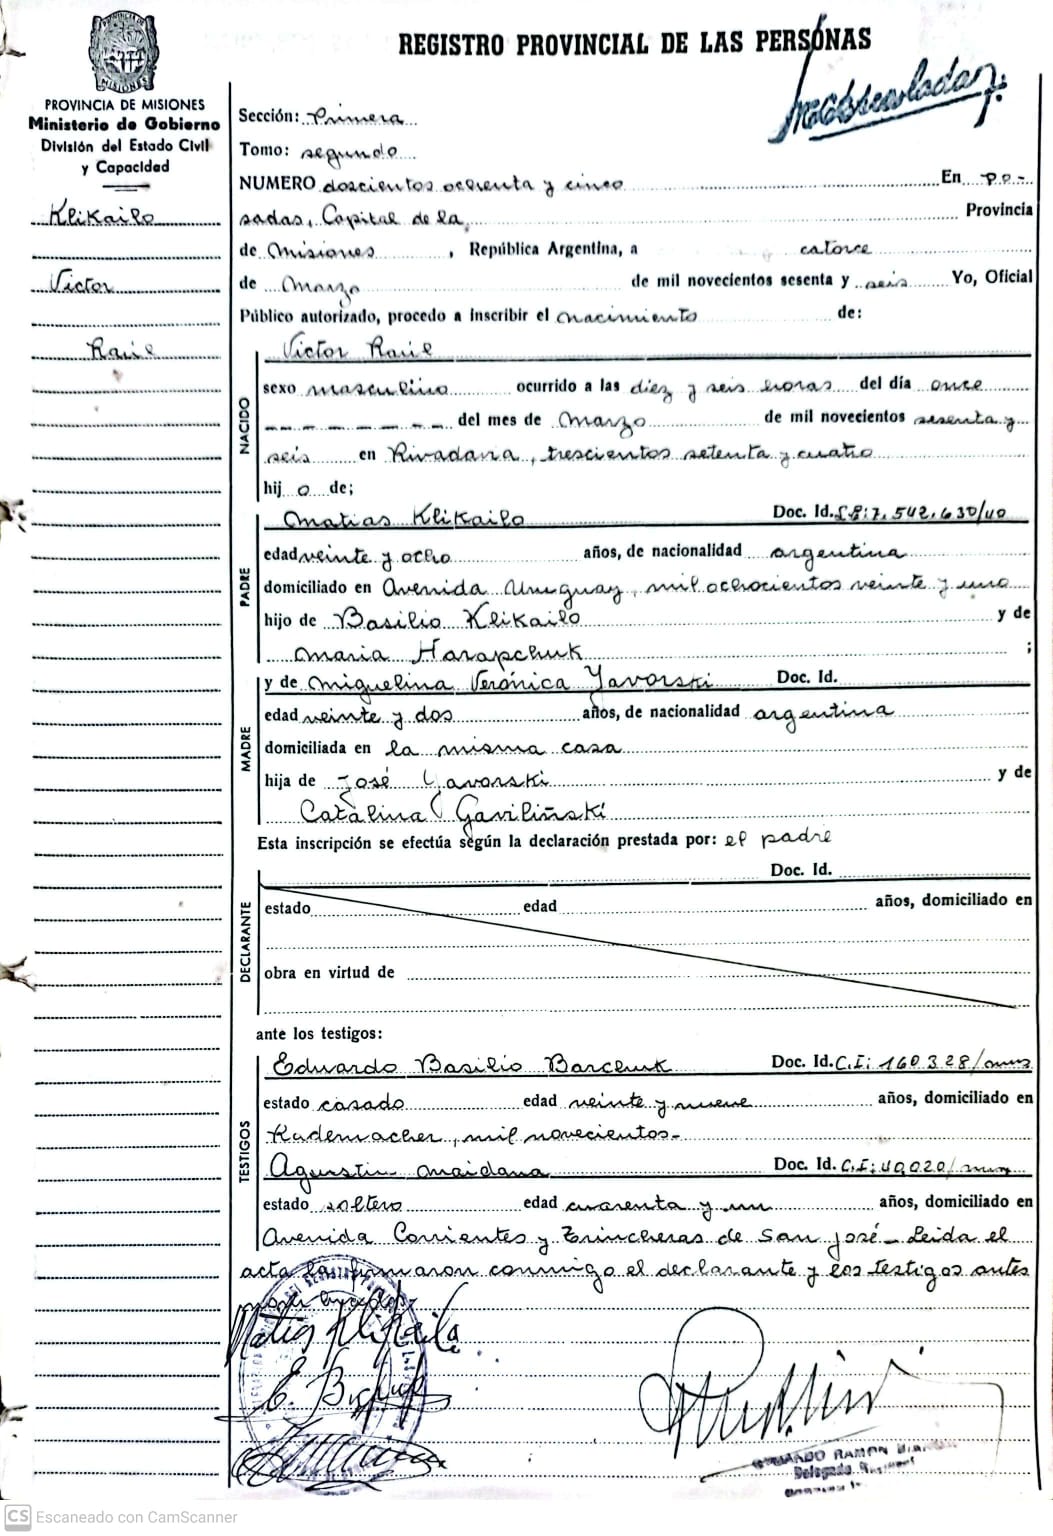 REGISTRO PROVINCIAL DE LAS PERSONAS
PROVINCIA DE MISIONES
Ministerio de Gobierno
División del Estado Civil
y Capacidad
Klikailo
Victor
Raúl
Sección: Primera
Tomo: segundo
NUMERO doscientos ochenta y cinco En Po-
sadas, Capital de la Provincia
de Misiones, República Argentina, a catorce
de Marzo de mil novecientos sesenta y seis Yo, Oficial
Público autorizado, procedo a inscribir el nacimiento de:
NACIDO
Victor Raúl
sexo masculino ocurrido a las diez y seis horas del día once
del mes de Marzo de mil novecientos sesenta y
seis en Rivadavia, trescientos setenta y cuatro
hij o de;
PADRE
Matias Klikailo Doc. Id. 7.542.630/40
edad veinte y ocho años, de nacionalidad argentina
domiciliado en Avenida Uruguay, mil ochocientos veinte y uno
hijo de Basilio Klikailo y de
Maria Harapchuk ;
MADRE
y de Miguelina Verónica Yavorski Doc. Id.
edad veinte y dos años, de nacionalidad argentina
domiciliada en la misma casa
hija de José Yavorski y de
Catalina Gaviliñski
Esta inscripción se efectúa según la declaración prestada por: el padre
DECLARANTE
Doc. Id.
estado edad años, domiciliado en
obra en virtud de
ante los testigos:
TESTIGOS
Eduardo Basilio Barchuk Doc. Id. C.I: 160328/
estado casado edad veinte y nueve años, domiciliado en
Rademacher, mil novecientos-
Agustin Maidana Doc. Id. C.I: 40020/
estado soltero edad cuarenta y un años, domiciliado en
Avenida Corrientes y Trincheras de San José- Leida el
acta la firmaron conmigo el declarante y los testigos antes
Matias Klikailo
RAMON
Delegado
CS Escaneado con CamScanner